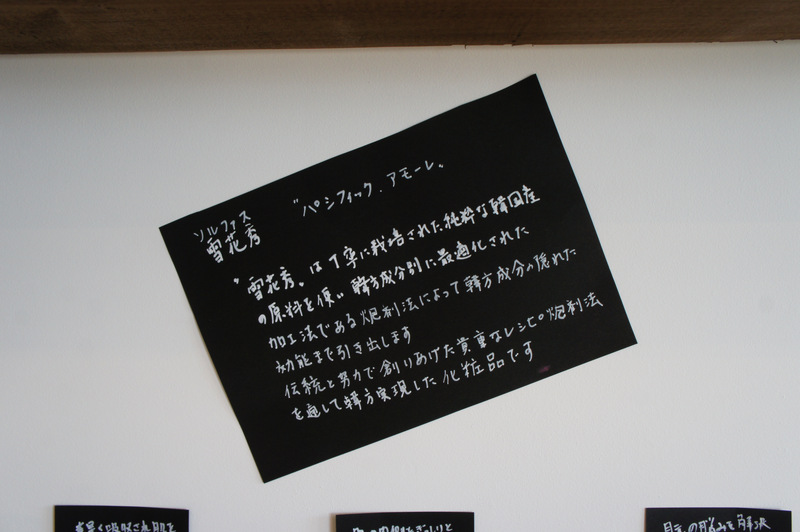 ソルファス
雪花秀
"パシフィック.アモーレ。
"雪花秀。は丁寧に栽培された純粋な韓国産
の原料を使い 韓方成分別に最適化された
加工法である炮剤法によって韓方成分の隠れた
効能まで引き出します
伝統と努力で創りあげた貴重なレシピ炮剤法
を通して韓方実現した化粧品です
の悩みを解決